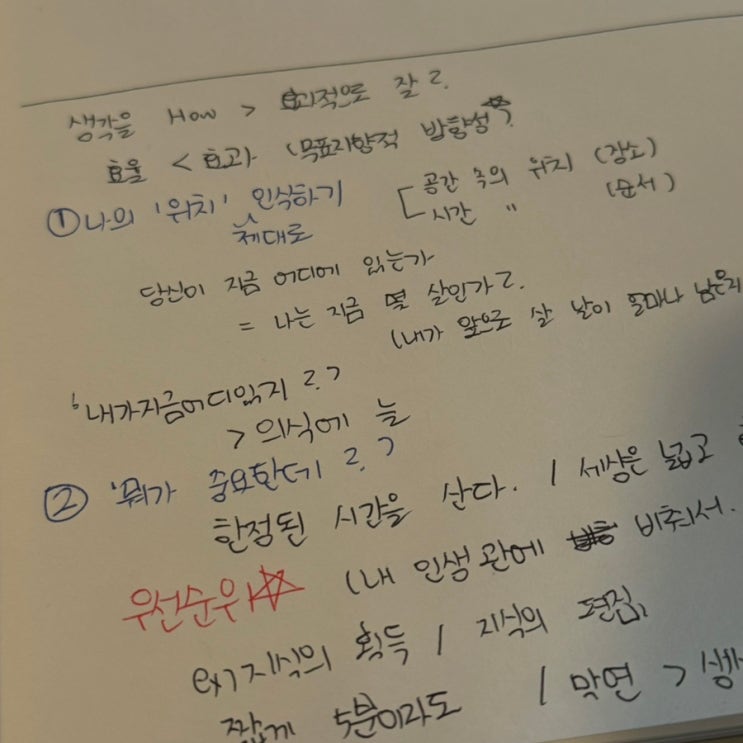 생각을 How > 효과적으로 잘?
효율 < 효과 (목표지향적 방향성☆)?
① 나의 '위치' 제대로 인식하기 [ 공간 축의 위치 (장소)
시간 〃 (순서)
당신이 지금 어디에 있는가
= 나는 지금 몇 살인가?
(내가 앞으로 살 날이 얼마나 남은지
'내가지금어디있지?'
> 의식에 늘
② '뭐가 중요한데?'
한정된 시간을 산다. / 세상은 넓고
우선순위☆ (내 인생관에 비춰서.
ex) 지식의 획득 / 지식의 편집,
짧게 5분이라도 / 막연 >